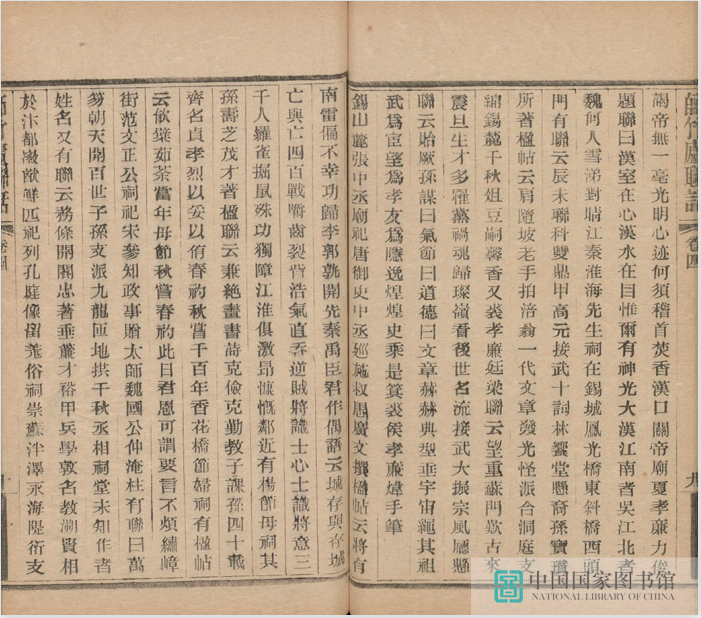 師竹廬聯話 卷四
謁帝無一毫光明心迹何須稽首焚香漢口關帝廟夏孝廉力儁
題聯曰漢室在心漢水在目惟爾有神光大漢江南者吳江北者
魏何人雪涕對晴江秦淮海先生祠在錫城鳳光橋東斜橋西頭
門有聯云辰未聯科雙鼎甲高元接武十詞林饗堂懸裔孫寶瓚
所著楹帖云肩隨坡老手拍涪翁一代文章發光怪派合洞庭支
綿錫麓千秋俎豆嗣馨香又裘孝廉廷梁聯云望重蘇門歎古來
震旦生才多罹黨禍魂歸璨嶺看後世名流接武大振宗風廳懸
聯云貽厥孫謀曰氣節曰道德曰文章赫赫典型垂宇宙繩其祖
武為宦望為孝友為隱逸煌煌史乘是箕裘侯孝廉煒手筆
錫山麓張中丞廟祀唐御史中丞巡施叔愚廣文撰楹帖云將有
南雷偏不幸功歸李郭孰開先秦禹臣君作偶語云城存與存城
亡與亡四百戰嚼齒裂眥浩氣直吞逆賊將識士心士識將意三
千人羅雀掘鼠殊功獨障江淮俱激昂慷慨鄰近有楊節母祠其
孫壽芝茂才著楹聯云兼絕畫書蒔克儉克勤教子課孫四十載
齊名貞孝烈以妥以侑春礿秋嘗千百年香花橋節婦祠有楹帖
云飲糵茹荼當年母節秋嘗春礿此日君恩可謂要言不煩繡嶂
街范文正公祠祀宋參知政事贈太師魏國公仲淹柱有聯曰萬
笏朝天開百世子孫支派九龍匝地拱千秋丞相祠堂未知作者
姓名又有聯云務條開閣忠著垂簾才裕甲兵學敦名教湖賢相
於汴都嶽猷鮮匹祀列孔庭像留羗俗祠崇蘇泮澤永海隄衍支
師竹廬聯話 卷四
中国国家图书馆
NATIONAL LIBRARY OF CHINA